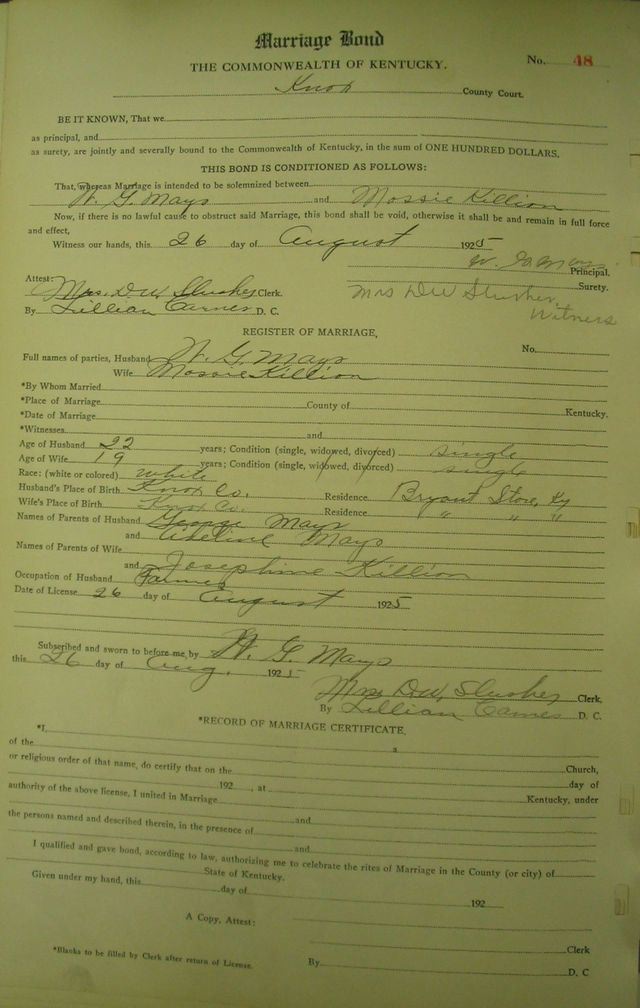 Marriage Bond
THE COMMONWEALTH OF KENTUCKY.
No. 48
Knox County Court.
BE IT KNOWN, That we
as principal, and
as surety, are jointly and severally bound to the Commonwealth of Kentucky, in the sum of ONE HUNDRED DOLLARS.
THIS BOND IS CONDITIONED AS FOLLOWS:
That, whereas Marriage is intended to be solemnized between
W. G. Mays and Mossie Killion
Now, if there is no lawful cause to obstruct said Marriage, this bond shall be void, otherwise it shall be and remain in full force
and effect,
Witness our hands, this 26 day of August 1925
W. G. Mays
Principal.
Surety.
Attest:
Mrs. D.W. Slusher Clerk.
Mrs DW Slusher,
Witness
By Lillian D. C.
REGISTER OF MARRIAGE,
No.
Full names of parties, Husband W. G. Mays
Wife Mossie Killion
*By Whom Married
*Place of Marriage County of Kentucky.
*Date of Marriage
*Witnesses and
Age of Husband 22 years; Condition (single, widowed, divorced) single
Age of Wife 19 years; Condition (single, widowed, divorced) single
Race: (white or colored) white
Husband's Place of Birth Knox Co. Residence Bryant Store, Ky
Wife's Place of Birth Knox Co. Residence " " "
Names of Parents of Husband George Mays
and Adeline Mays
Names of Parents of Wife
and Josephine Killion
Occupation of Husband Farmer
Date of License 26 day of August 1925
Subscribed and sworn to before me, by W. G. Mays
this 26 day of Aug. 1925
Mrs D.W. Slusher Clerk,
By Lillian D. C.
*RECORD OF MARRIAGE CERTIFICATE.
*I, a
of the Church,
or religious order of that name, do certify that on the day of
192 , at Kentucky, under
authority of the above license, I united in Marriage
and
the persons named and described therein, in the presence of
and
I qualified and gave bond, according to law, authorizing me to celebrate the rites of Marriage in the County (or city) of
State of Kentucky.
Given under my hand, this day of 192
A Copy, Attest:
Clerk
*Blanks to be filled by Clerk after return of License.
By D. C